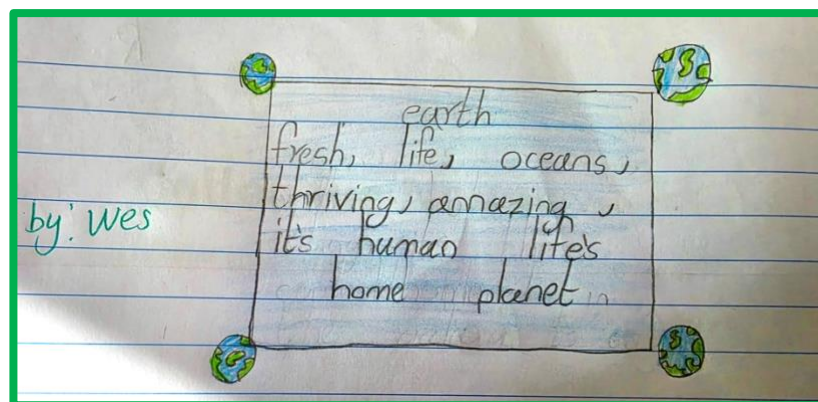 earth
fresh, life, oceans,
thriving, amazing,
it's human life's
home planet
by: Wes